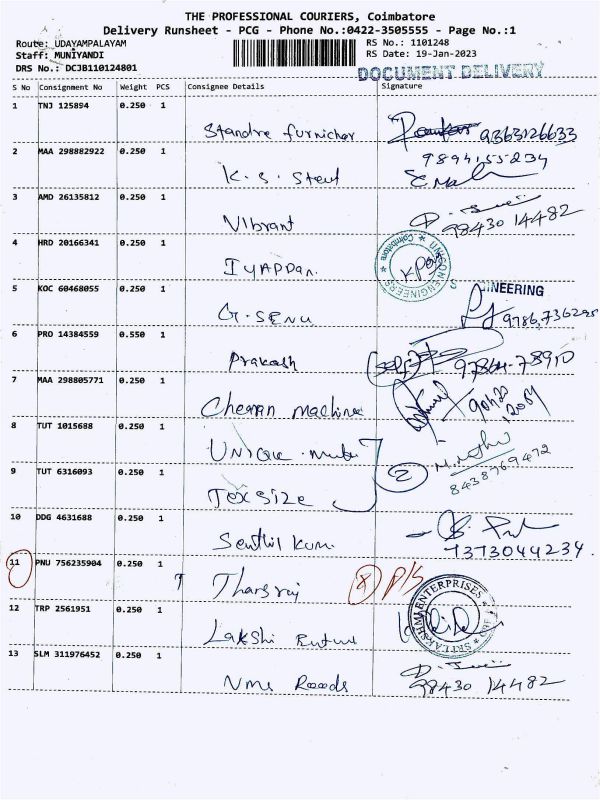 THE PROFESSIONAL COURIERS, Coimbatore
Delivery Runsheet - PCG - Phone No.:0422-3505555 - Page No.:1
Route: UDAYAMPALAYAM RS No.: 1101248
Staff: MUNIYANDI RS Date: 19-Jan-2023
DRS No.: DCJB110124801 DOCUMENT DELIVERY
S No Consignment No Weight PCS Consignee Details Signature
1 TNJ 125894 0.250 1
Standre furnicher 9363126633
9894155234
2 MAA 298882922 0.250 1
K. S. Steel
3 AMD 26135812 0.250 1
Vibrant 98430 14482
4 HRD 20166341 0.250 1
IYAPPan. Coimbatore ENGINEERS
5 KOC 60468055 0.250 1 INEERING
G. SENU
6 PRO 14384559 0.550 1
Prakash (self)
7 MAA 298805771 0.250 1
Cheran machine
8 TUT 1015688 0.250 1
UNIQUE
2
8438769472
9 TUT 6316093 0.250 1
TexSize
10 DDG 4631688 0.250 1
Senthil Kum 7373044234.
11 PNU 756235904 0.250 1
Thangraj 8 P/S
12 TRP 2561951 0.250 1 SRI LAKSHMI ENTERPRISES
Lakshi
13 SLM 311976452 0.250 1
Nms Roods 98430 14482